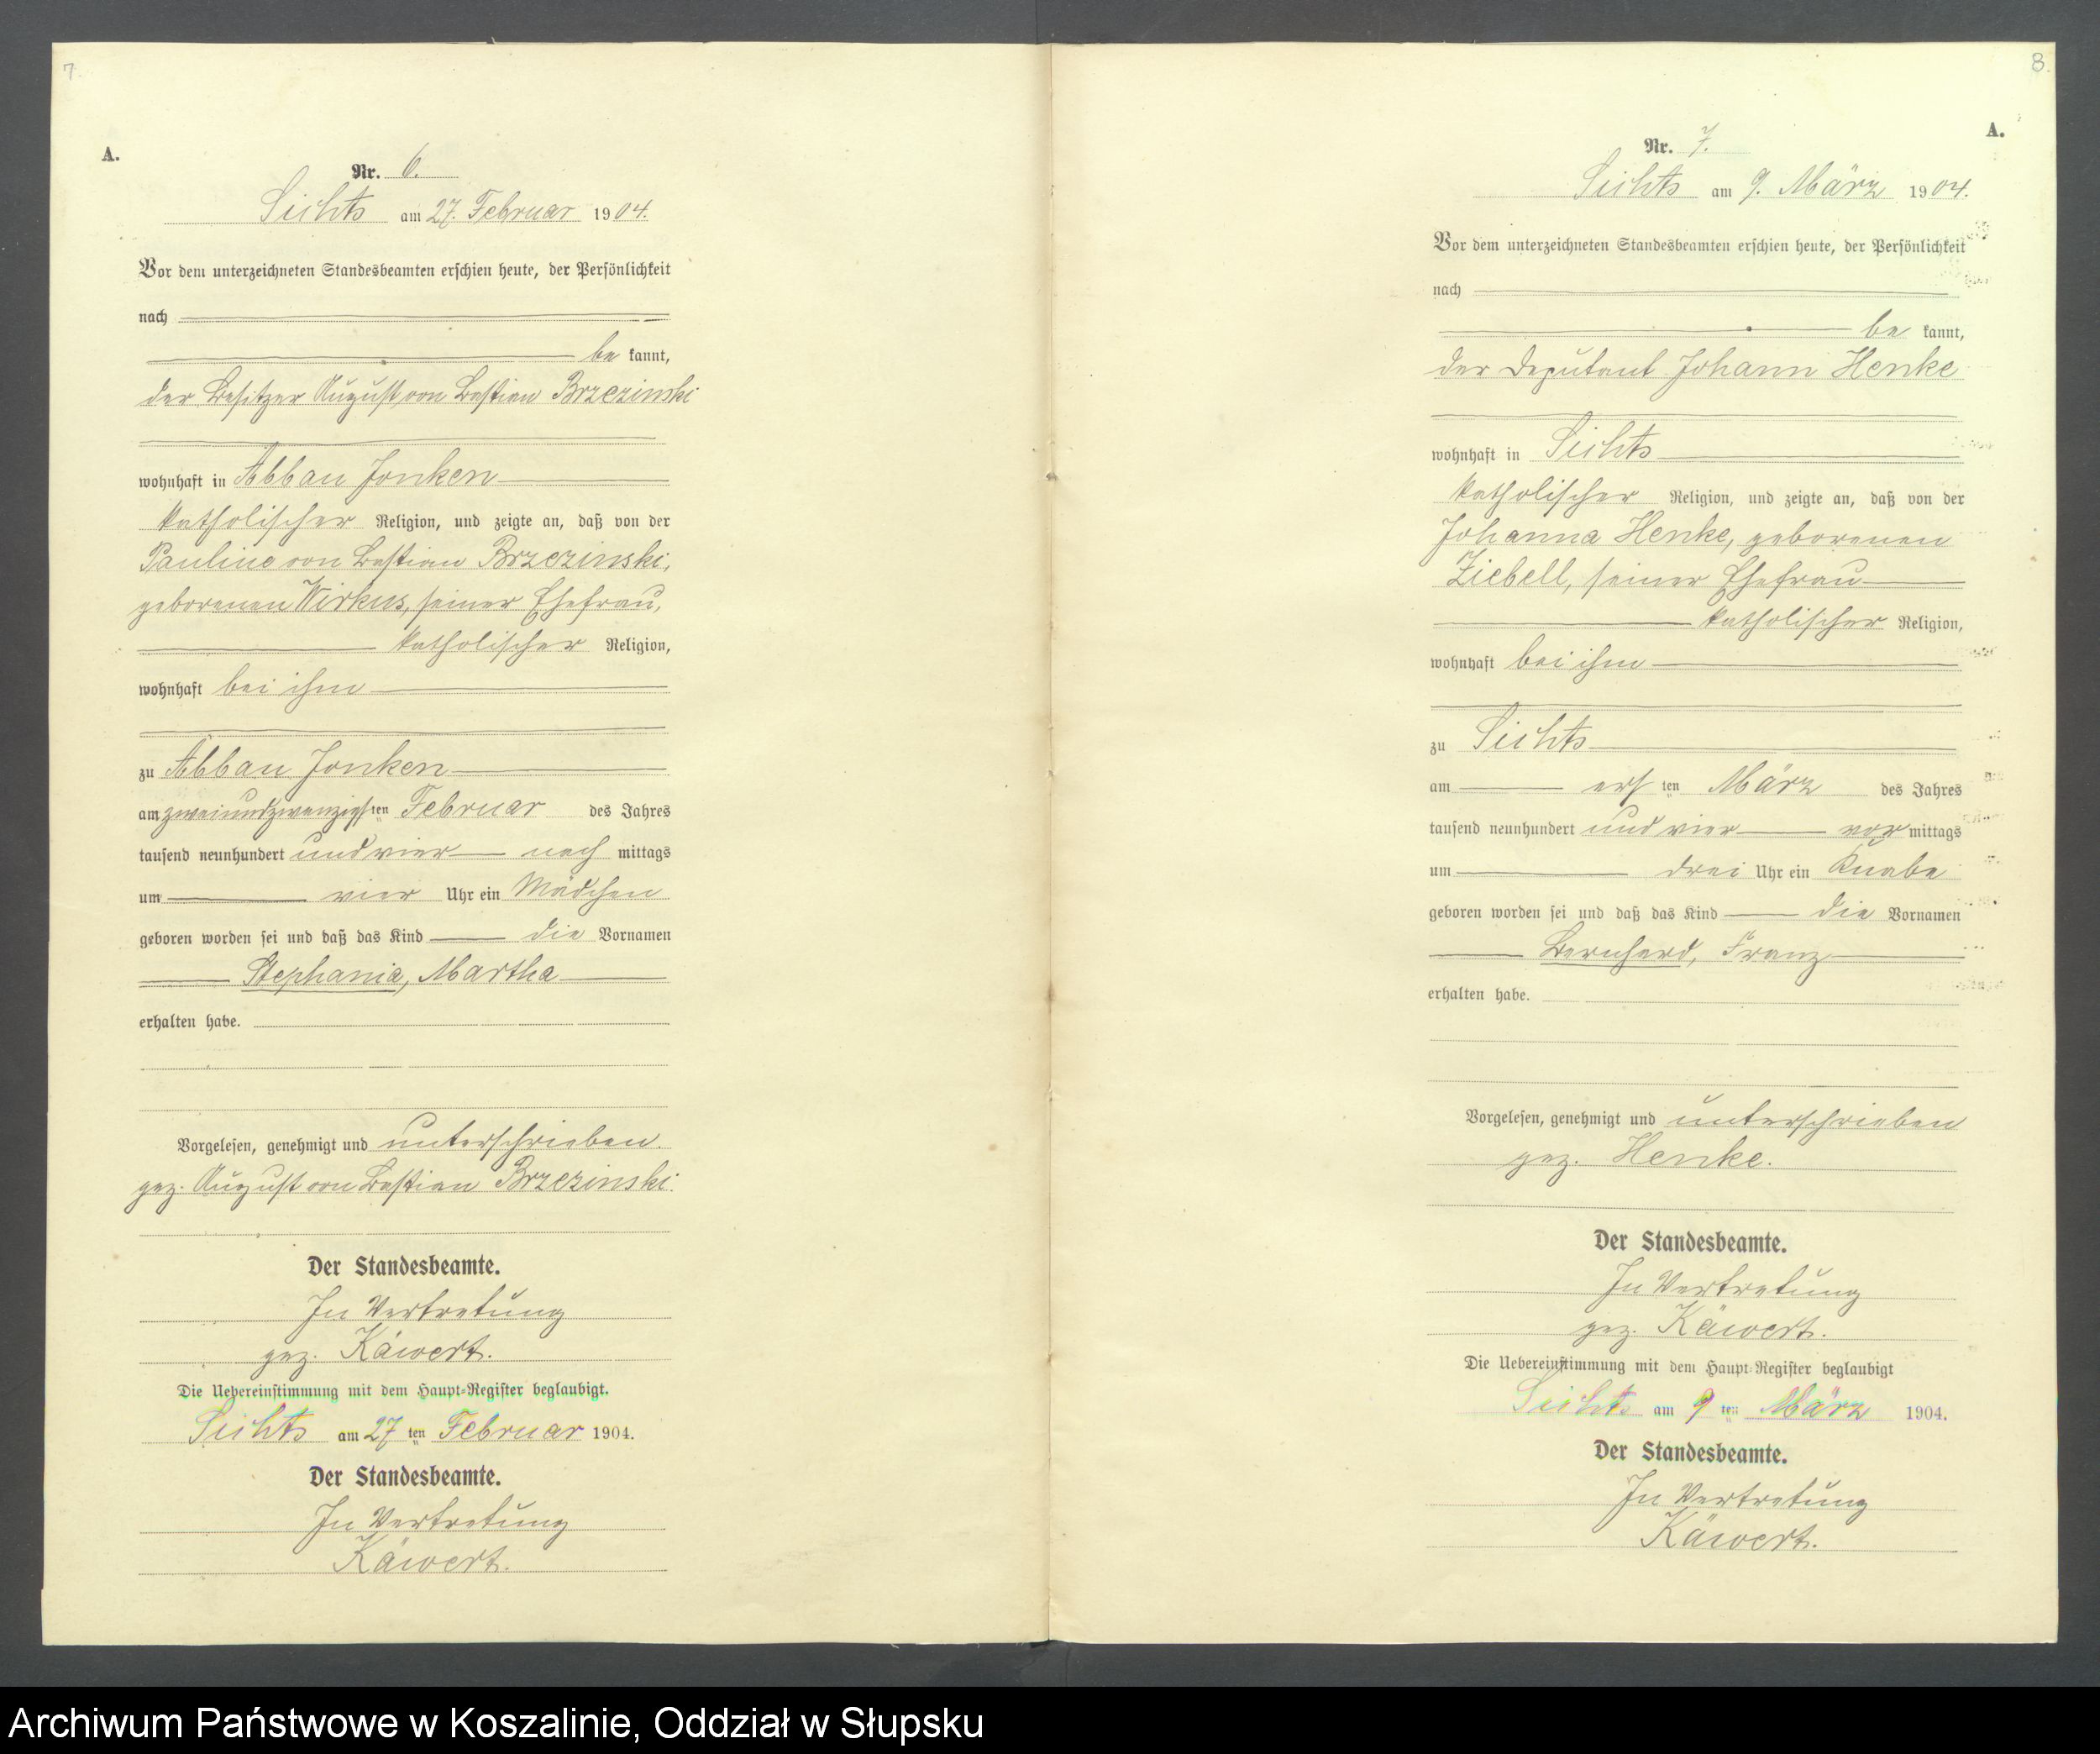 7.
A.
Nr. 6.
Sichts am 27. Februar 1904.
Vor dem unterzeichneten Standesbeamten erschien heute, der Persönlichkeit
nach
be kannt,
der Besitzer August von Bastian Brzezinski
wohnhaft in Abbau Jonken
katholischer Religion, und zeigte an, daß von der
Pauline von Bastian Brzezinski,
geborenen Wirkus, seiner Ehefrau,
katholischer Religion,
wohnhaft bei ihm
zu Abbau Jonken
am zweiundzwanzigsten Februar des Jahres
tausend neunhundert und vier nach mittags
um vier Uhr ein Mädchen
geboren worden sei und daß das Kind die Vornamen
Stephania, Martha
erhalten habe.
Vorgelesen, genehmigt und unterschrieben.
gez. August von Bastian Brzezinski.
Der Standesbeamte.
In Vertretung
gez. Käwert.
Die Uebereinstimmung mit dem Haupt-Register beglaubigt.
Sichts am 27 ten Februar 1904.
Der Standesbeamte.
In Vertretung
Käwert.
8.
A.
Nr. 7.
Sichts am 9. März 1904.
Vor dem unterzeichneten Standesbeamten erschien heute, der Persönlichkeit
nach
be kannt,
der Deputant Johann Henke
wohnhaft in Sichts
katholischer Religion, und zeigte an, daß von der
Johanna Henke, geborenen
Ziebell, seiner Ehefrau
katholischer Religion,
wohnhaft bei ihm
zu Sichts
am ersten März des Jahres
tausend neunhundert und vier vor mittags
um drei Uhr ein Knabe
geboren worden sei und daß das Kind die Vornamen
Bernhard, Franz
erhalten habe.
Vorgelesen, genehmigt und unterschrieben
gez. Henke.
Der Standesbeamte.
In Vertretung
gez. Käwert.
Die Uebereinstimmung mit dem Haupt-Register beglaubigt
Sichts am 9 ten März 1904.
Der Standesbeamte.
In Vertretung
Käwert.
Archiwum Państwowe w Koszalinie, Oddział w Słupsku